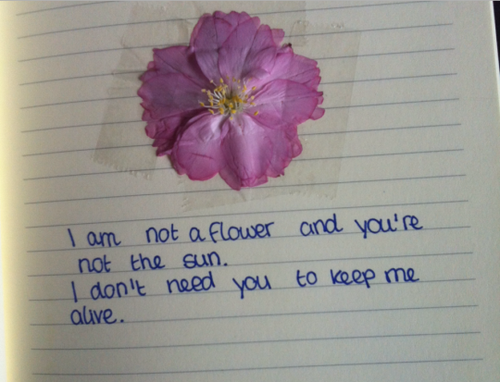 I am not a flower and you're
not the sun.
I don't need you to keep me
alive.